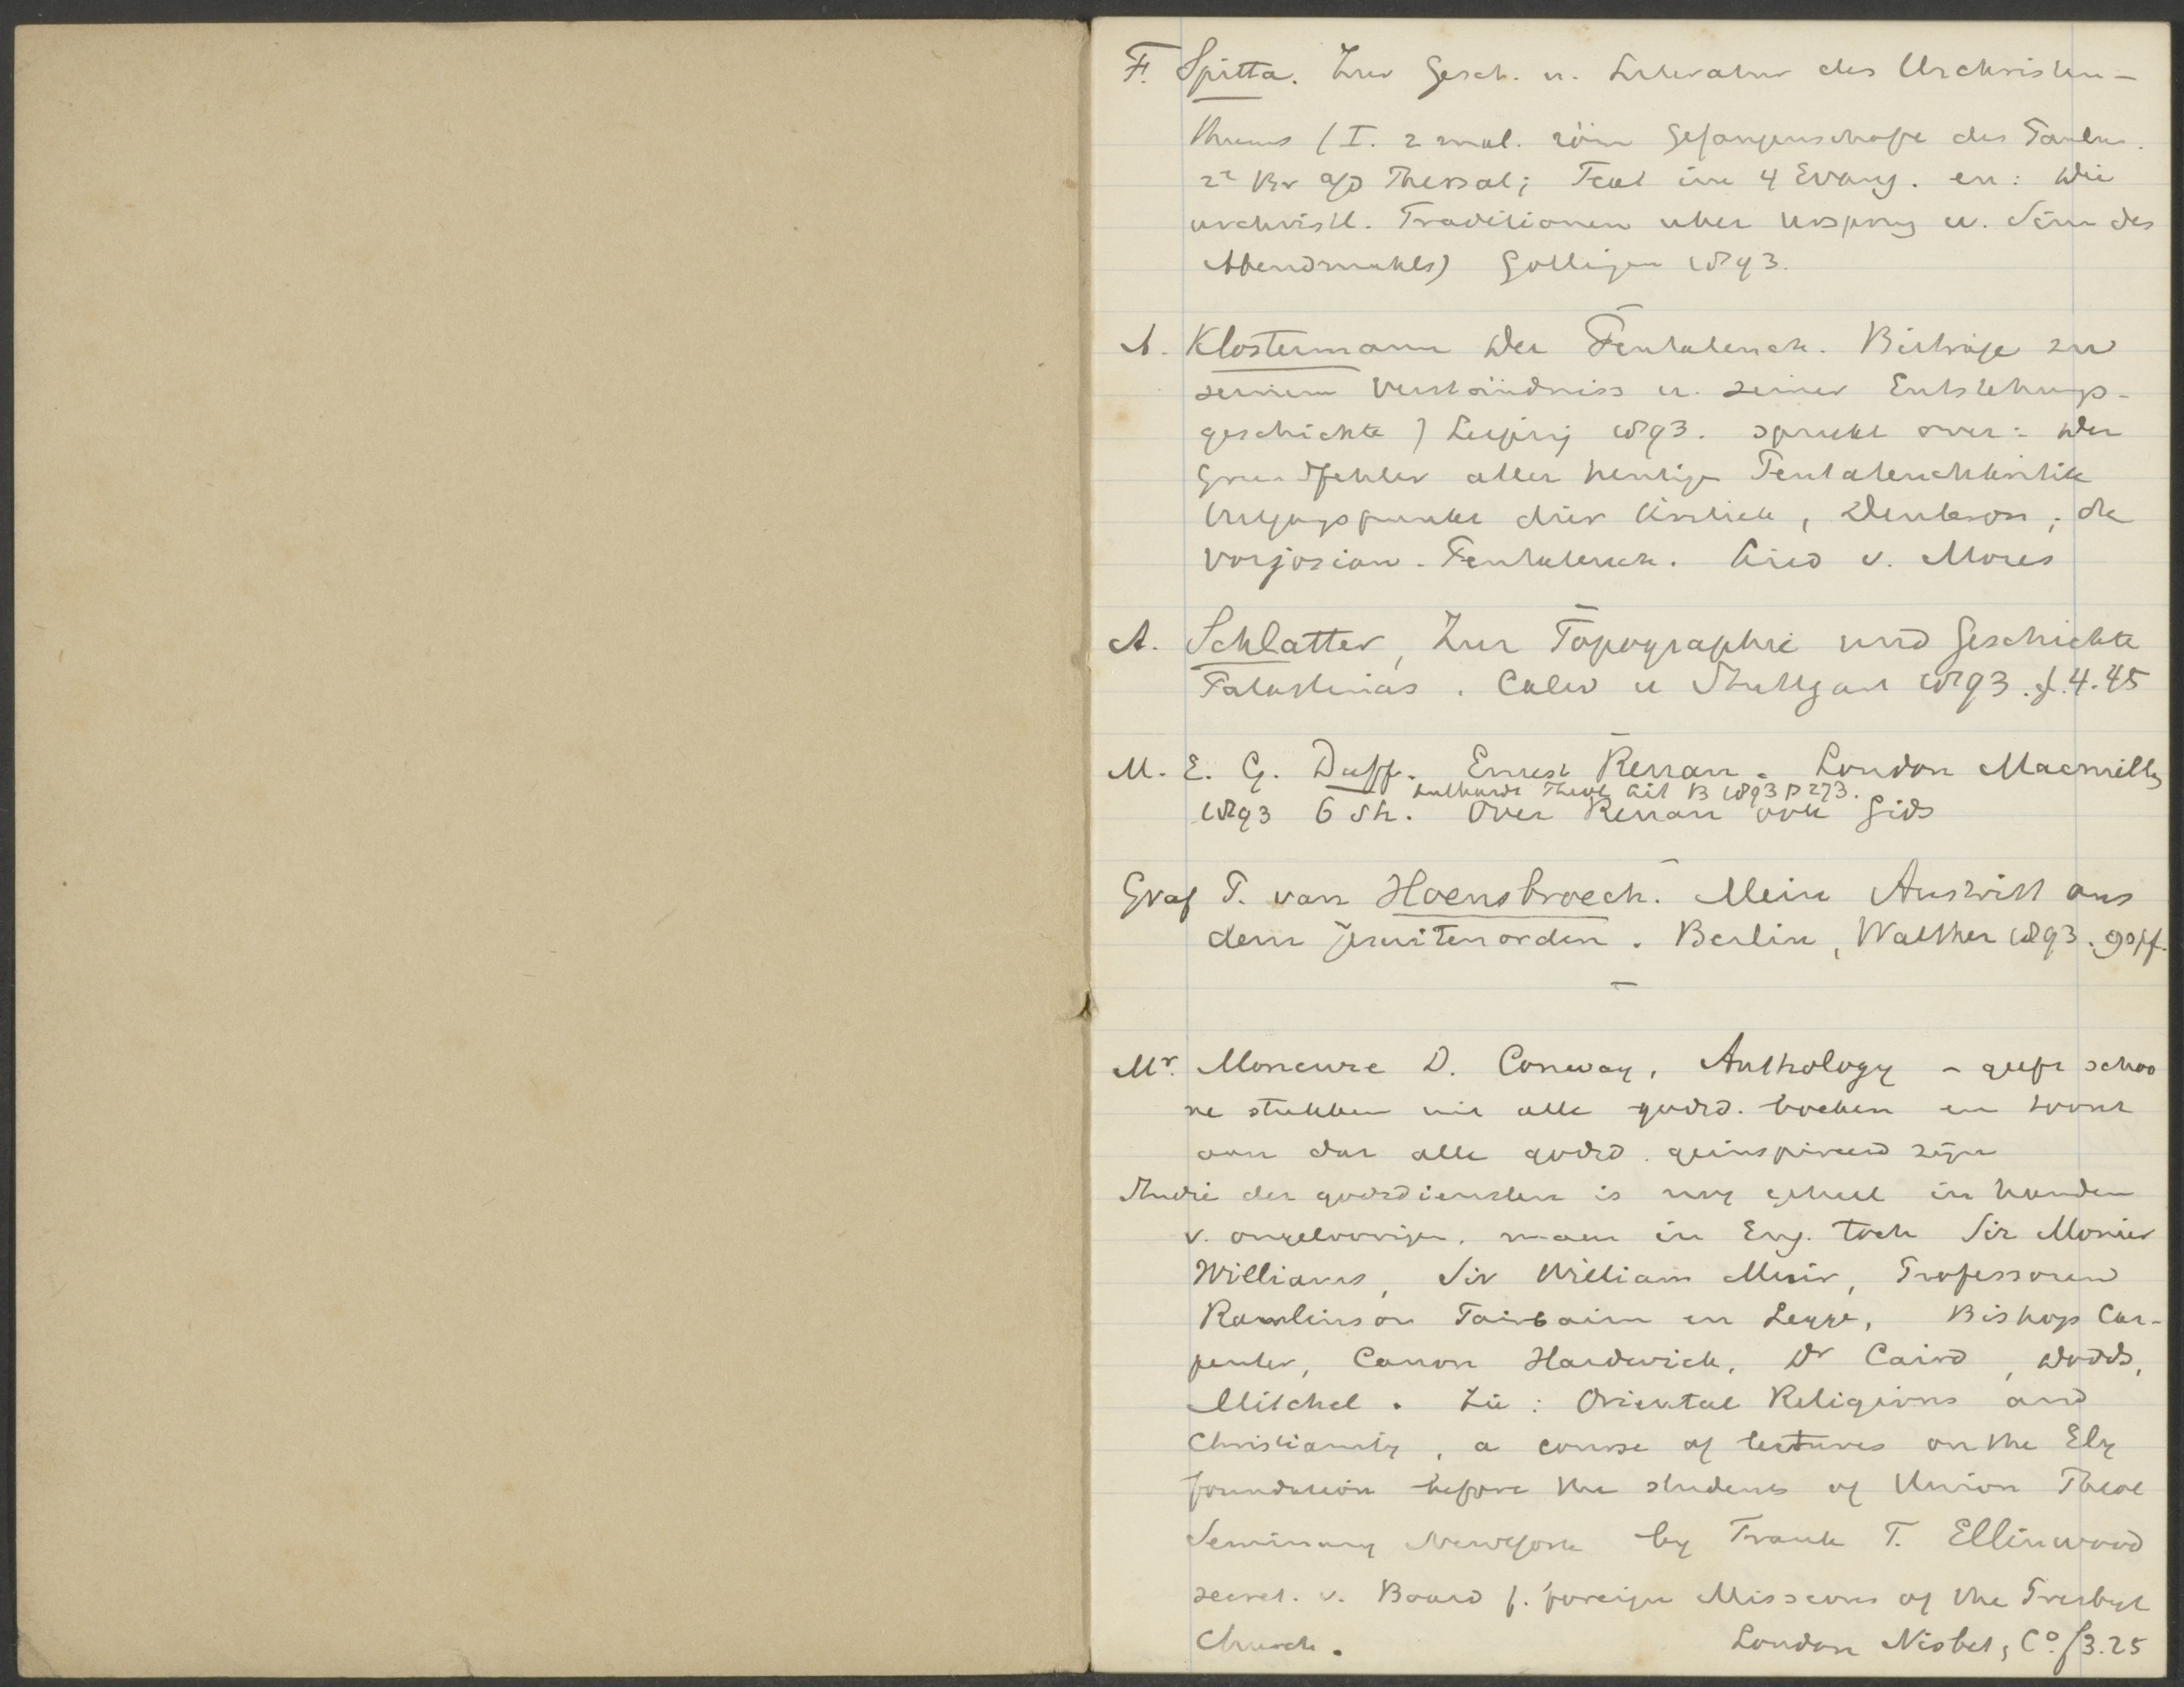 F. Spitta. Zur Gesch. u. Literatur des Urchristen-
thums (I. 2 mal. röm Gefangenschaft des Paulus.
2e Br a/d Thessal; Text im 4 Evang. en: Die
urchristl. Traditionen uber Ursprung u. Sinn des
Abendmahls) Gottingen 1893.
A. Klostermann Der Pentateuch. Beiträge zu
seinem Verständniss u. seiner Entstehungs-
geschichte) Leipzig 1893. spreekt over: Der
Grundfehler aller heutigen Pentateuchkritik
krit., Deuteron; de
vorjosian. Pentateuch. Lied v. Mozes
A. Schlatter, Zur Topographie und Geschichte
Palastinas. Calw u Stuttgart 1893. f. 4.45
M. E. G. Duff. Ernest Renan. London Macmillan
Luthardt Theol Lit B 1893 p 273.
1893 6 sh. Over Renan ook Gids
Graf P. van Hoensbroech. Mein Austritt aus
dem Jesuitenorden. Berlin, Walther 1893. 90 pf.
Mr. Moncure D. Conway, Anthology - geeft schoo
ne stukken uit alle godsd. boeken en toont
aan dat alle godsd. geinspireerd zijn
Studie der godsdiensten is nog geheel in handen
v. ongeloovigen. maar in Eng. toch Sir Monier
Williams, Sir William Muir, Professoren
Rawlinson Fairbairn en Legge, Bishop Car-
penter, Canon Hardwick, Dr Caird, Dodds,
Mitchel. Zie: Oriental Religions and
Christianity, a course of lectures on the Ely
foundation before the students of Union Theol
Seminary NewYork by Frank F. Ellinwood
secret. v. Board f. foreign Missions of the Presbyt
Church. London Nisbet, Co. f3.25